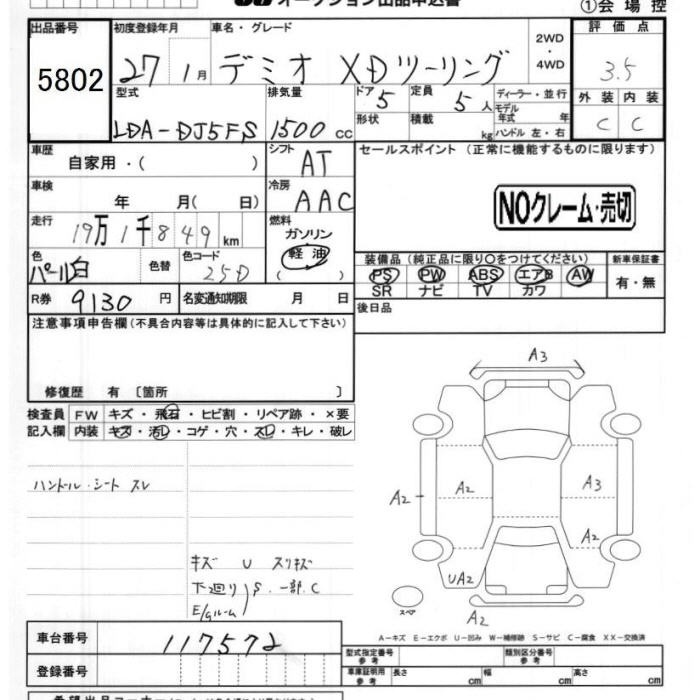 オークション出品申込書
①会場控
出品番号 初度登録年月 車名・グレード 評価点
5802 27 1月 デミオ XDツーリング 2WD・4WD 3.5
型式 排気量 ドア 5 定員 5人 ディーラー・並行 外装 内装
LDA-DJ5FS 1500cc 形状 積載 kg モデル年式 年 ハンドル 左・右 C C
車歴 自家用・( ) シフト AT セールスポイント (正常に機能するものに限ります)
車検 年 月( 日) 冷房 AAC
NOクレーム・売切
走行 19万1千849km 燃料 ガソリン 軽油 ( )
色 パール白 色替 色コード 25D
装備品(純正品に限り〇をつけてください) 新車保証書
PS PW ABS エアB AW 有・無
SR ナビ TV カワ
R券 9130円 名変通知期限 月 日 後日品
注意事項申告欄(不具合内容等は具体的に記入して下さい)
修復歴 有 〔箇所 〕
検査員 FW キズ・飛石・ヒビ割・リペア跡・×要
記入欄 内装 キズ・汚レ・コゲ・穴・スレ・キレ・破レ
ハンドル・シート スレ
キズ U スリキズ
下廻り S・一部C
E/gルーム
A3
A2
A2
A3
A2
UA2
A2
スペア
A-キズ E-エクボ U-凹み W-補修跡 S-サビ C-腐食 XX-交換済
車台番号 117572
登録番号
型式指定番号 参考 類別区分番号 参考
車庫証明用 参考 長さ cm 幅 cm 高さ cm